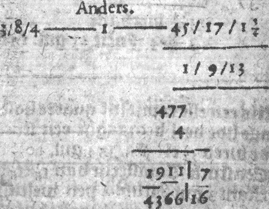 Anders.
3/8/4 — 1 — 45/17/1½
1/9/13
477
4
1911| 7
4366|16